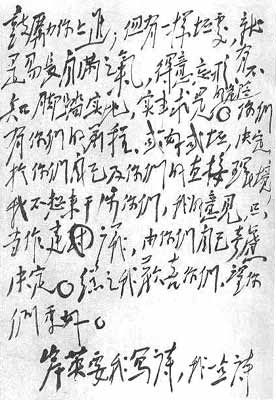 鼓励你上进;但有一样坏处,就
是易长自满之气,得意忘形,有不
知脚踏实地,实事求是的危险。你们
有你们的前程,或好或坏,决定
于你们自己及你们的直接环境,
我不想来干涉你们,我的意见,只
当作建议,由你们自己考虑
决定。总之我欢喜你们,望你
们更好。
岸英要我写诗,我一点诗